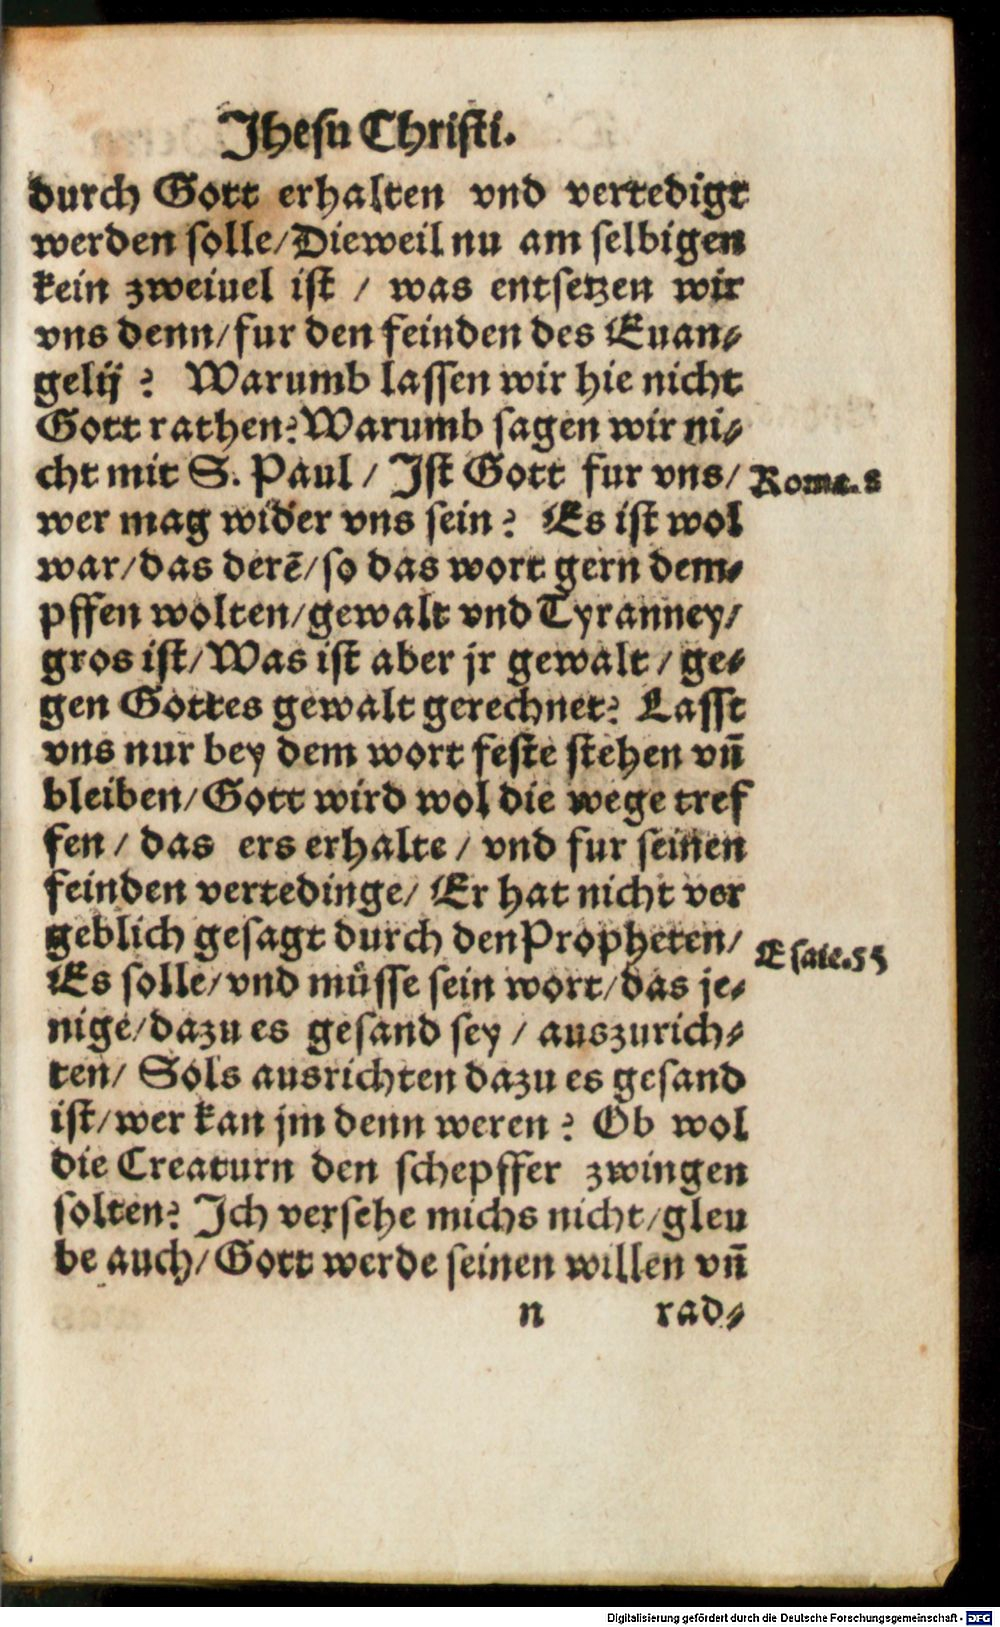 Jhesu Christi.
durch Gott erhalten vnd vertedigt
werden solle/Dieweil nu am selbigen
kein zweiuel ist / was entsetzen wir
vns denn/fur den feinden des Euan⸗
gelij ? Warumb lassen wir hie nicht
Gott rathen? Warumb sagen wir ni⸗
cht mit S. Paul / Jst Gott fur vns/ Roma. 8
wer mag wider vns sein ? Es ist wol
war/das derẽ/so das wort gern dem⸗
pffen wolten/gewalt vnd Tyranney/
gros ist/Was ist aber jr gewalt / ge⸗
gen Gottes gewalt gerechnet? Lasst
vns nur bey dem wort feste stehen vn̄
bleiben/Gott wird wol die wege tref
fen / das ers erhalte / vnd fur seinen
feinden vertedinge/ Er hat nicht ver
geblich gesagt durch den Propheten/ Esaie.55
Es solle/vnd muͤsse sein wort/das je⸗
nige/dazu es gesand sey / auszurich⸗
ten/ Sols ausrichten dazu es gesand
ist/wer kan jm denn weren ? Ob wol
die Creaturn den schepffer zwingen
solten? Jch versehe michs nicht/gleu
be auch/Gott werde seinen willen vn̄
n rad⸗
Digitalisierung gefördert durch die Deutsche Forschungsgemeinschaft - DFG